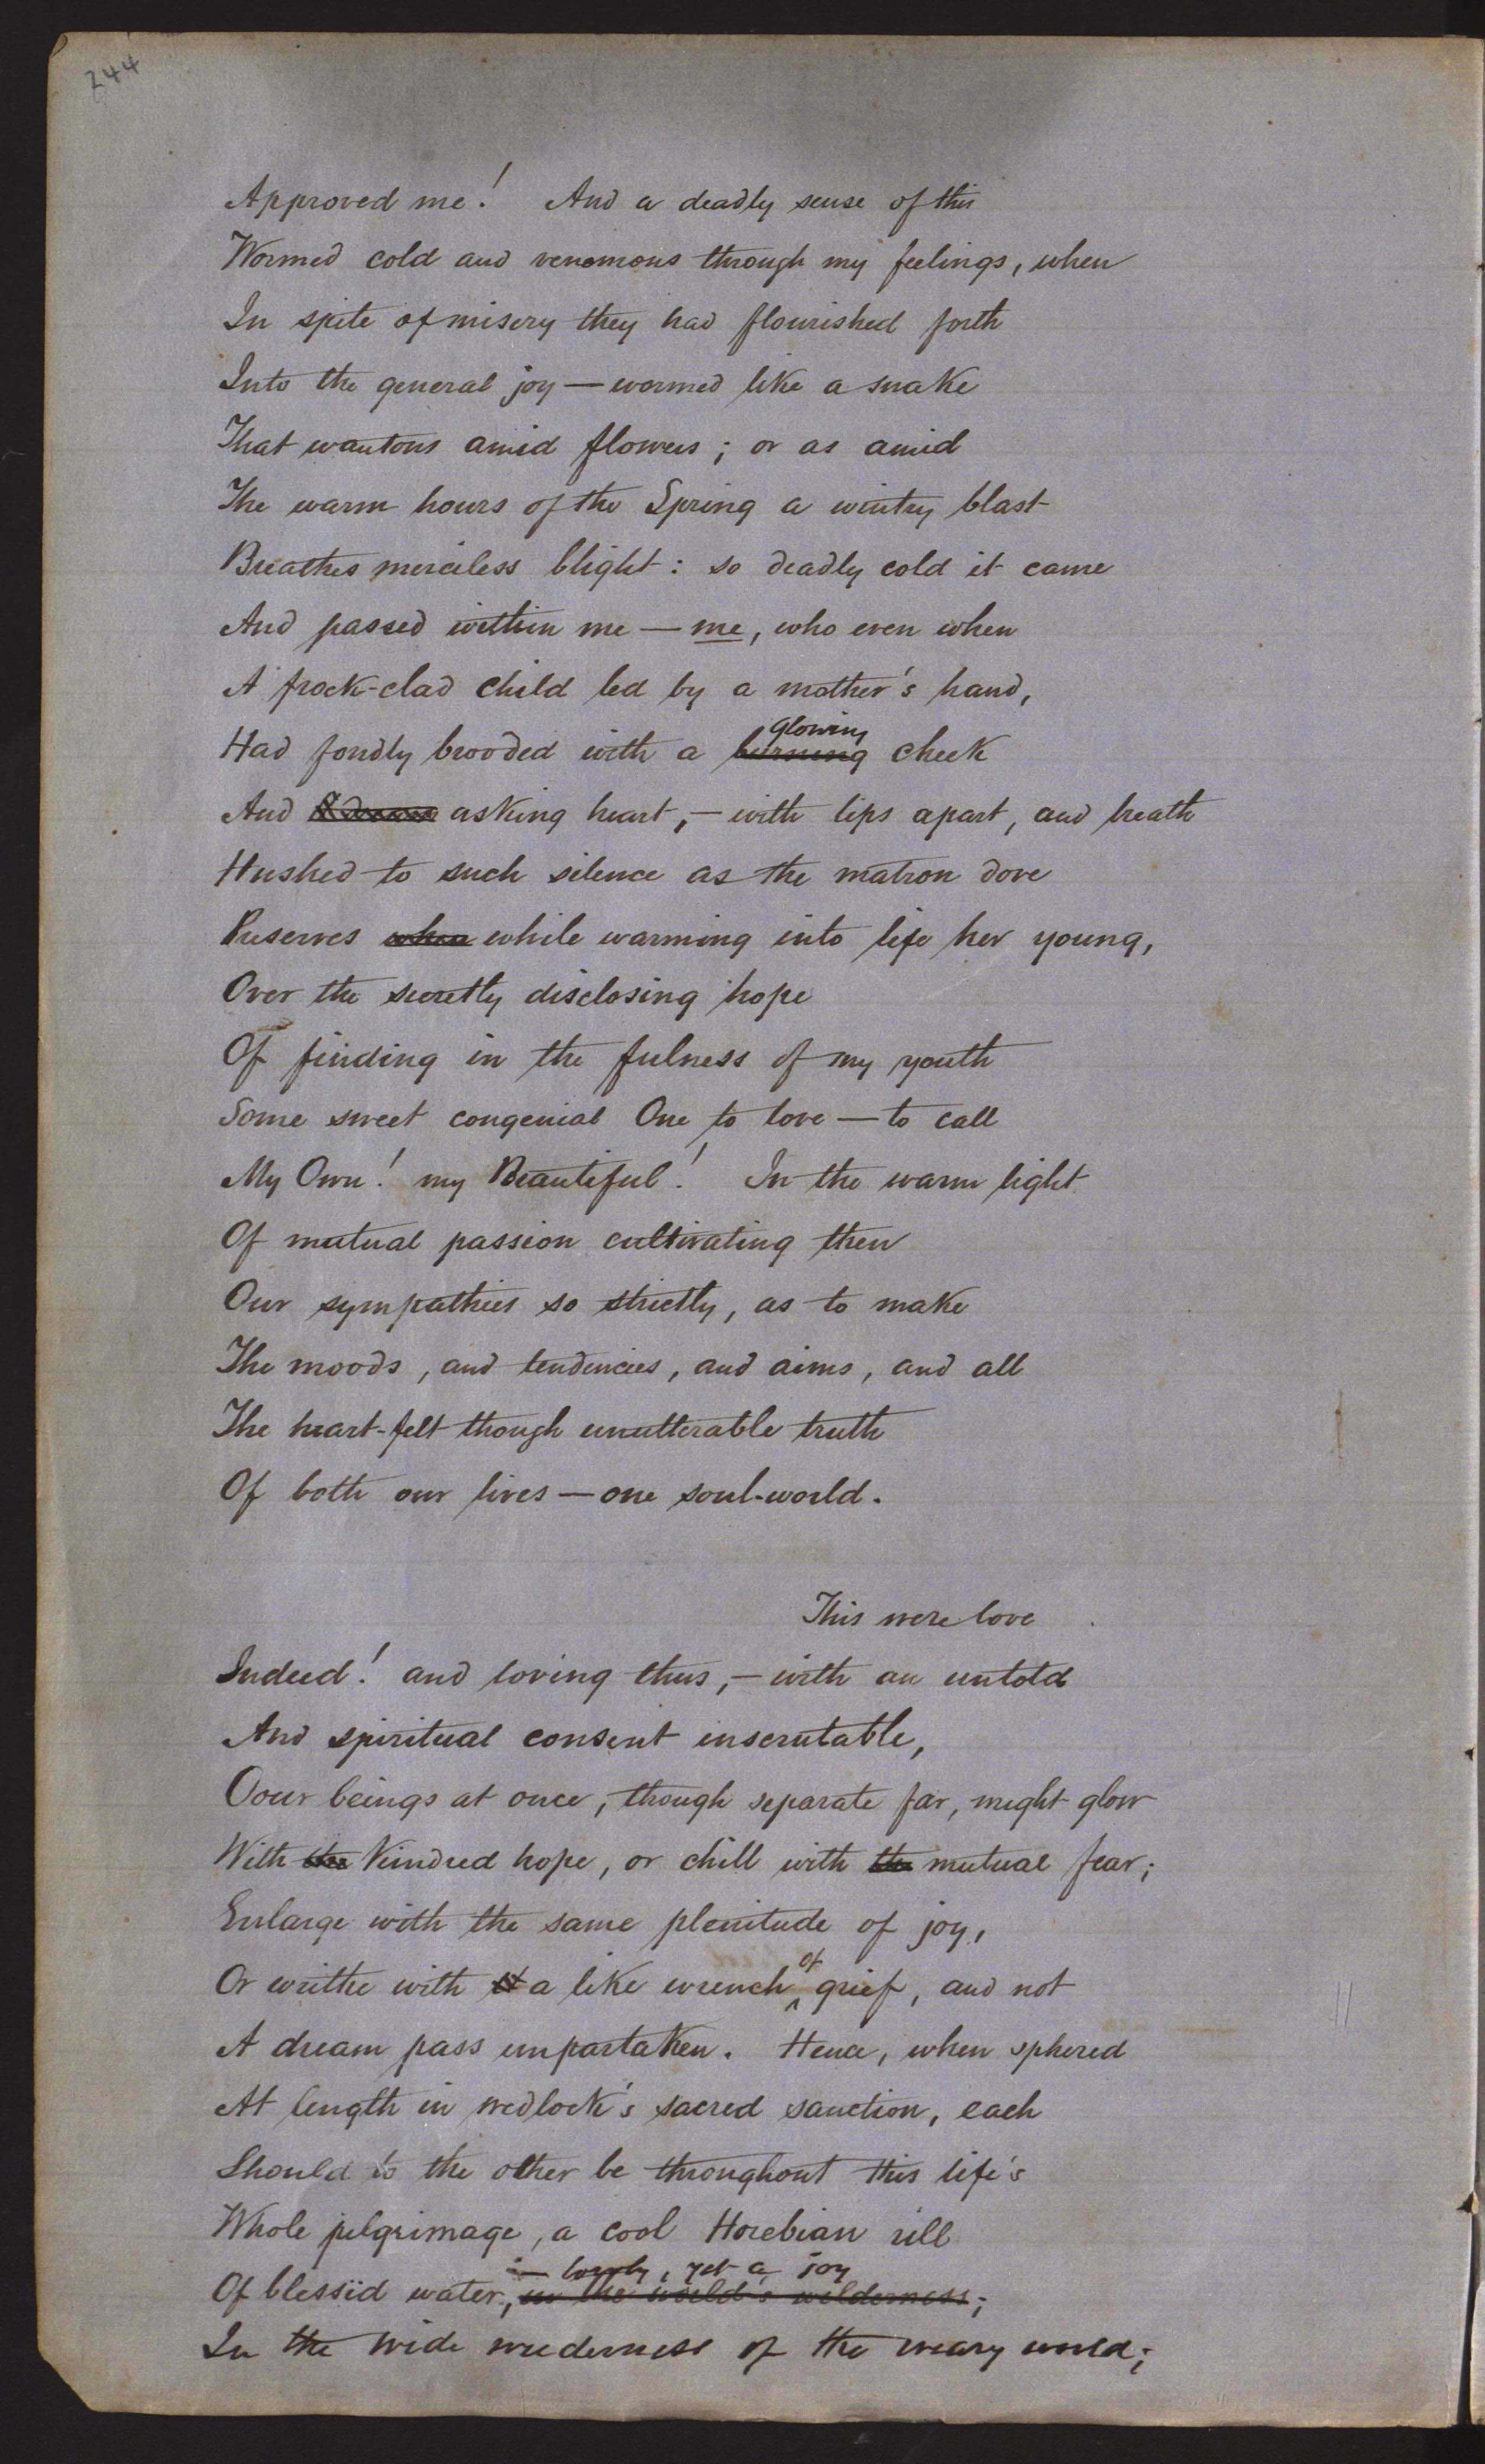 244
Approved me! And a deadly sense of this
Wormed cold and venomous through my feelings, when
In spite of misery they had flourished forth
Into the general joy — wormed like a snake
That wantons amid flowers; or as amid
The warm hours of the Spring a wintry blast
Breathes merciless blight: so deadly cold it came
And passed within me — me, who even when
A frock-clad child led by a mother's hand,
glowing
Had fondly brooded with a burning cheek
And asking heart, — with lips apart, and breath
Hushed to such silence as the matron dove
Preserves when while warming into life her young,
Over the secretly disclosing hope
Of finding in the fulness of my youth
Some sweet congenial One to love — to call
My Own! my Beautiful! In the warm light
Of mutual passion cultivating then
Our sympathies so strictly, as to make
The moods, and tendencies, and aims, and all
The heart-felt though unutterable truth
Of both our lives — one soul-world.
This were love
Indeed! and loving thus, — with an untold
And spiritual consent inscrutable,
Oour beings at once, though separate far, might glow
With the Kindred hope, or chill with the mutual fear;
Enlarge with the same plenitude of joy,
of
Or writhe with a like wrench ^ grief, and not
A dream pass unpartaken. Hence, when sphered
At length in wedlock's sacred sanction, each
Should to the other be throughout this life's
Whole pilgrimage, a cool Horebian rill
— lowly, yet a joy
Of blessïd water, in the world's wilderness;
In the wide wilderness of the weary world;